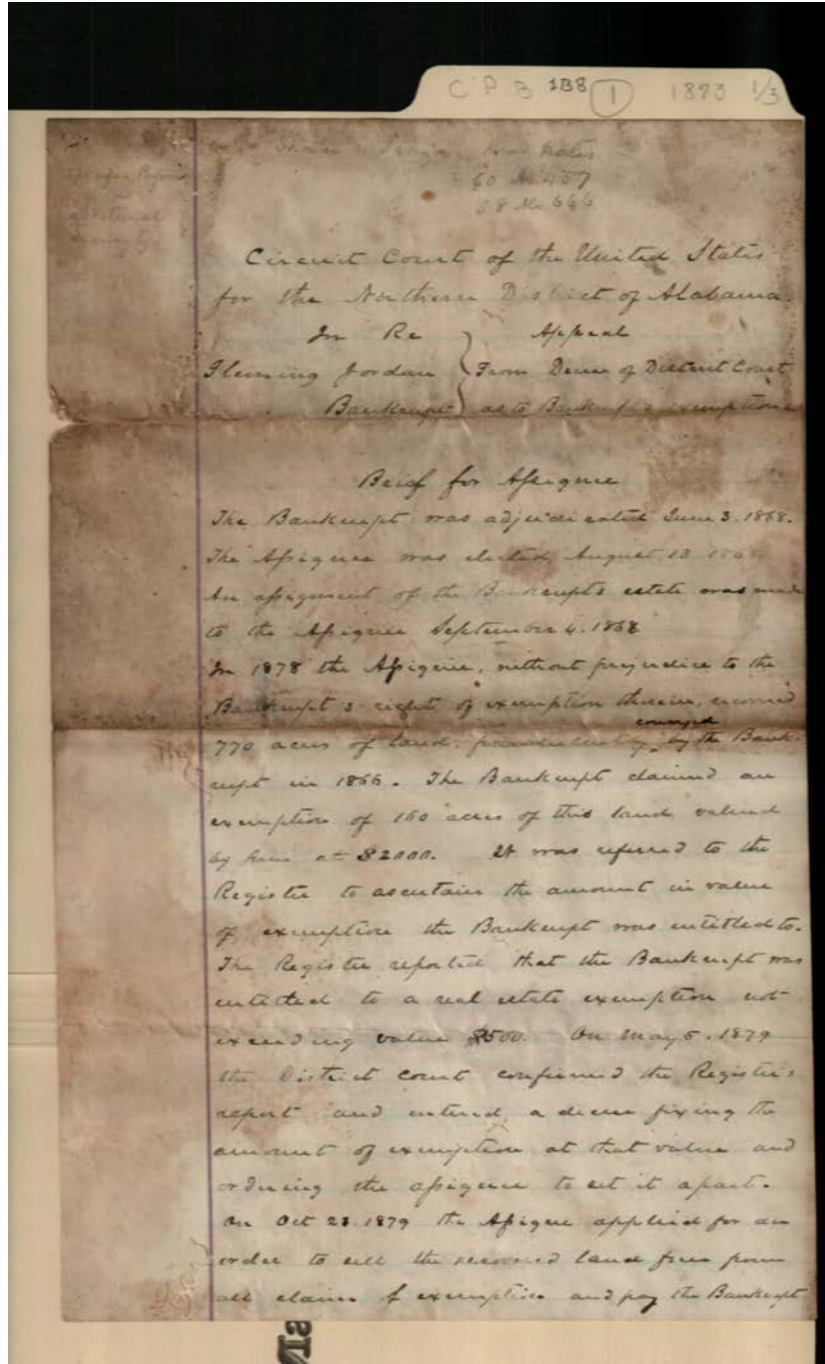 C P B 1B8 1 1873 1/3
60 Al. 457
58 Al. 666
Circuit Court of the United States
for the Northern District of Alabama
In Re } Appeal
Fleming Jordan } From Decree of District Court
Bankrupt } as to Bankrupt's exemptions
Brief for Assignee
The Bankrupt was adjudicated June 3. 1868.
The Assignee was elected August 13 1868
An assignment of the Bankrupts estate was made
to the Assignee September 4. 1868
In 1878 the Assignee, without prejudice to the
Bankrupt's right of exemption therein, recovered
conveyed
770 acres of land, fraudulently by the Bank-
rupt in 1866. The Bankrupt claimed an
exemption of 160 acres of this land valued
by him at $2000. It was referred to the
Register to ascertain the amount in value
of exemption the Bankrupt was entitled to.
The Register reported that the Bankrupt was
entitled to a real estate exemption not
exceeding value $500. On May 5. 1879
the District Court confirmed the Register's
report and entered a decree fixing the
amount of exemption at that value and
ordering the assignee to set it apart.
On Oct 23. 1879 the Assignee applied for an
order to sell the recovered land free from
all claim of exemption and pay the Bankrupt